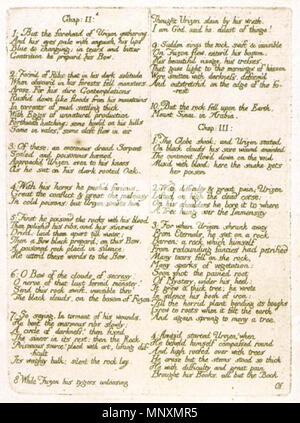 Chap: II:
1: But the forehead of Urizen gathering,
And his eyes pale with anguish, his lips
Blue & changing; in tears and bitter
Contrition he prepar'd his Bow,
2: Form'd of Ribs: that in his dark solitude
When obscur'd in his forests fell monsters,
Arose. For his dire Contemplations
Rush'd down like floods from his mountains
In torrents of mud settling thick
With Eggs of unnatural production
Forthwith hatching; some howl'd on his hills
Some in vales; some aloft flew in air
3: Of these: an enormous dread Serpent
Scaled and poisonous horned
Approach'd Urizen even to his knees
As he sat on his dark rooted Oak.
4: With his horns he push'd furious.
Great the conflict & great the jealousy
In cold poisons: but Urizen smote him
5: First he poison'd the rocks with his blood
Then polish'd his ribs, and his sinews
Dried; laid them apart till winter;
Then a Bow black prepar'd; on this Bow,
A poisoned rock plac'd in silence:
He utter'd these words to the Bow.
6: O Bow of the clouds of secresy!
O nerve of that lust form'd monster!
Send this rock swift, invisible thro'
The black clouds, on the bosom of Fuzon
7: So saying, In torment of his wounds,
He bent the enormous ribs slowly;
A circle of darkness! then fixed
The sinew in its rest: then the Rock
Poisonous source! plac'd with art, lifting dif-
ficult
Its weighty bulk: silent the rock lay.
8: While Fuzon his tygers unloosing
Thought Urizen slain by his wrath.
I am God, said he, eldest of things!
9: Sudden sings the rock, swift & invisible
On Fuzon flew, enter'd his bosom;
His beautiful visage, his tresses,
That gave light to the mornings of heaven
Were smitten with darkness, deform'd
And outstretch'd on the edge of the fo-
rest
10: But the rock fell upon the Earth,
Mount Sinai, in Arabia.
Chap: III:
1: The Globe shook; and Urizen seated
On black clouds his sore wound anointed
The ointment flow'd down on the void
Mix'd with blood; here the snake gets
her poison
2: With difficulty & great pain; Urizen
Lifted on high the dead corse:
On his shoulders he bore it to where
A Tree hung over the Immensity
3: For when Urizen shrunk away
From Eternals, he sat on a rock
Barren; a rock which himself
From redounding fancies had petrified
Many tears fell on the rock,
Many sparks of vegetation;
Soon shot the pained root
Of Mystery, under his heel:
It grew a thick tree; he wrote
In silence his book of iron:
Till the horrid plant bending its boughs
Grew to roots when it felt the earth
And again sprung to many a tree.
4: Amaz'd started Urizen! when
He beheld himself compassed round
And high roofed over with trees
He arose but the stems stood so thick
He with difficulty and great pain
Brought his Books, all but the Book
Of
alamy
Image ID: MNXMR5
www.alamy.com